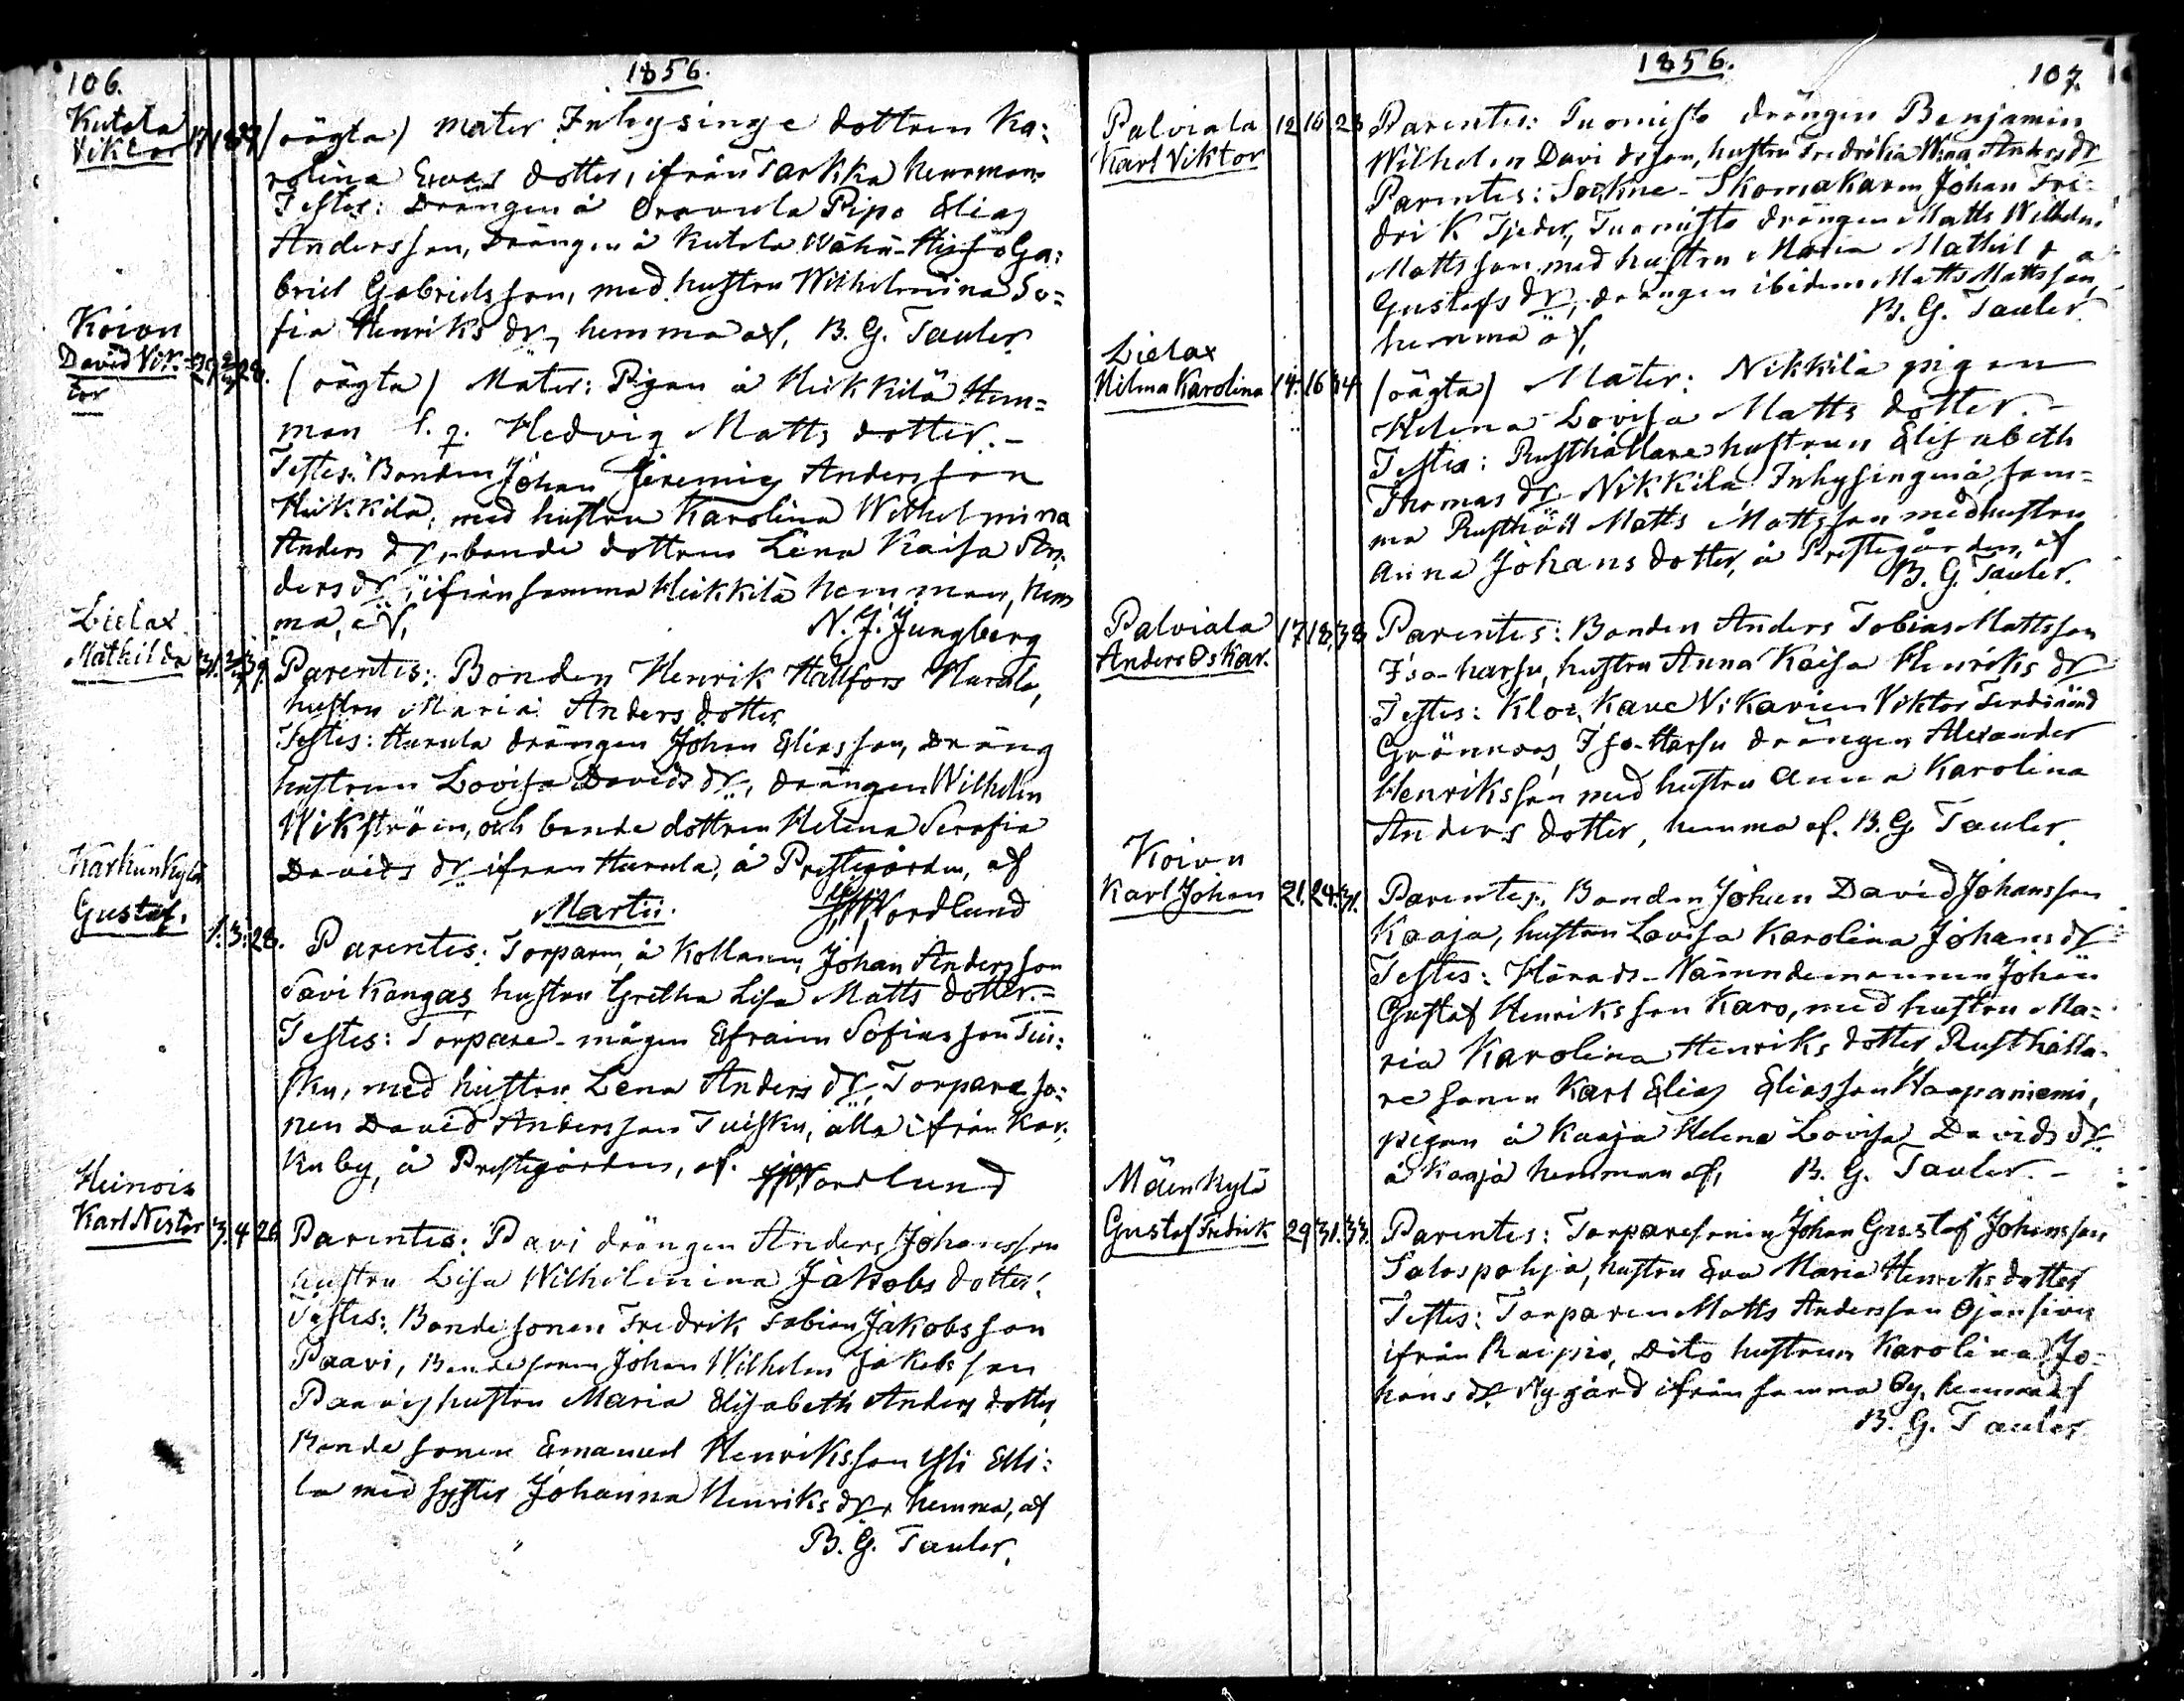 106.
1856.
Kutola
Viktor
17
(oägta) Mater Inhysinge dottren Ka:
rolina Evas dotter, ifrån Tarkka hemman
Testes: Drängen å Oravula Pipo Elias
Andersson, Drängen å Kutola Wähä-Hiisiö Ga:
briel Gabrielsson, med hustru Wilhelmina So=
fia Henriks dr, hemma af, B. G. Tauler
Koivu
David Vik-
tor
28.
(oägta) Mater: Pigan å Heikkilä Hem=
man S. q. Hedvig Matts dotter.-
Testes: Bonden Johan Jeremias Andersson
Heikkilä, med hustru Karolina Wilhelmina
Anders dr, bonde dottren Lena Kaisa An:
ders dr, ifrån samma Heikkilä hemman, hem
ma, af,
N. J. Jungberg
Lielax
Mathilda
31.
39.
Parentes: Bonden Henrik Hällfors Harula,
hustru Maria Anders dotter,
Testes: Harula drängen Johan Eliasson, Dräng
hustrun Lovisa Davids dr, drängen Wilhelm
Wikström, och bonde dottren Helena Serafia
Davids dr ifrån Harula, å Prestegården, af
Nordlund
Martii.
Karkunkylä
Gustaf.
1. 3. 28.
Parentes: Torparen å Kollanen Johan Andersson
Savikangas, hustru Gretha Lisa Matts dotter.-
Testes: Torpare-mågen Efraim Sofiasson Tui:
sku, med hustru Lena Anders dr, Torpare so:
nen David Andersson Tuisku, alla ifrån Kar:
ku by, å Prestegården, af.
Nordlund
Heinois
Karl Nestor
3. 4 26
Parentes: Pavi drängen Anders Johansson
hustru Lisa Wilhelmina Jakobs dotter.
Testes: Bonde sonen Fredrik Fabian Jakobsson
Paavi, Bonde sonen Johan Wilhelm Jakobsson
Paavis hustru Maria Elisabeth Anders dotter,
Bonde sonen Emanuel Henriksson Yli Elli:
la med syster Johanna Henriks dr, hemma, af
B. G. Tauler.
1856.
107.
Palviala
Karl Viktor
12 16 23
Parentes: Tuomisto drängen Benjamin
Wilhelm Davidsson, hustru Fredrika Wina Anders dr
Parentes: Sockne-Skomakaren Johan Fre:
drik Tjeder, Tuomisto drängen Matts Wilhelm
Mattsson med hustru Maria Mathilda
Gustafs dr, drängen ibidem Matts Mattsson,
hemma af,
B. G. Tauler.
Lielax
Hilma Karolina
14. 16 34
(oägta) Mater: Nikkilä pigan
Helena Lovisa Matts dotter.-
Testes: Rusthållare hustrun Elisabeth
Thomas dr Nikkilä Inhysingen å sam=
ma Rusthåll Matts Mattsson med hustru
Anna Johans dotter, å Prestegården, af
B. G. Tauler.
Palviala
Anders Oskar.
17 18 38
Parentes: Bonden Anders Tobias Mattsson
Iso-harsu, hustru Anna Kaisa Henriks dr
Testes: Klockare Vikarien Viktor Ferdinand
Grönroos, Iso-Harsu drängen Alexander
Henriksson med hustru Anna Karolina
Anders dotter, hemma af. B. G. Tauler.
Koivu
Karl Johan
21. 24. 31.
Parentes: Bonden Johan David Johansson
Kaaja, hustru Lovisa Karolina Johans dr
Testes: Härads-Nämndemannen Johan
Gustaf Henriksson Karo, med hustru Ma=
ria Karolina Henriks dotter, Rusthålla=
re sonen Karl Elias Eliasson Haapaniemi,
pigan å Kaaja Helena Lovisa Davids dr
å Kaaja hemman af, B. G. Tauler.-
Mäenkylä
Gustaf Fredrik
29 31. 33.
Parentes: Torparesonen Johan Gustaf Johansson
Salospohja, hustru Eva Maria Henriks dotter
Testes: Torparen Matts Andersson Ojansivu
ifrån Raipio, Dito hustrun Karolina Jo=
hans dr. Nygård ifrån samma by, hemma af
B. G. Tauler